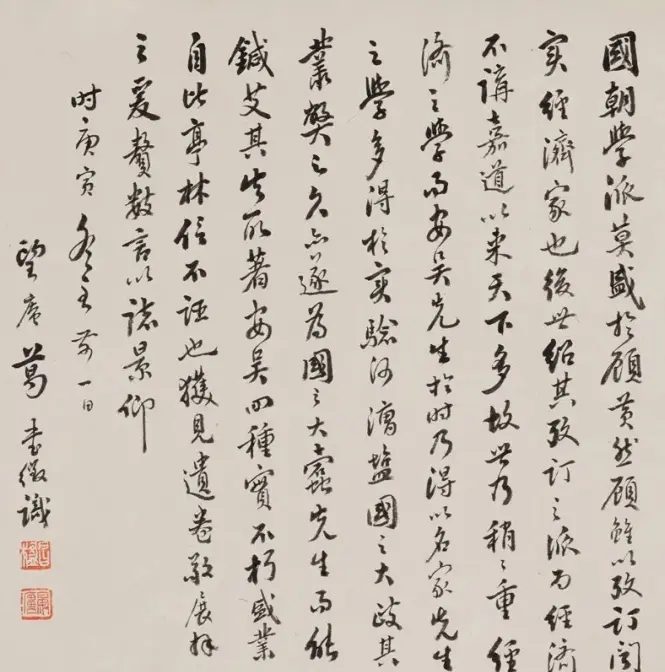 國朝學派莫盛於顧黃然顧雖以攷訂聞
實經濟家也後世紹其攷訂之派而經濟
不講嘉道以來天下多故世乃稍〻重經
濟之學而安吳先生於时乃得以名家先生
之學多得於實驗河漕鹽國之大政其
叢弊之久亦遂為國之大蠹先生而能
鍼艾其失所著安吳四種實不朽盛業
自比亭林信不誣也獲見遺卷敬展拜
之爰贅數言以誌景仰
时庚寅冬至前一日
望庵葛書徵識